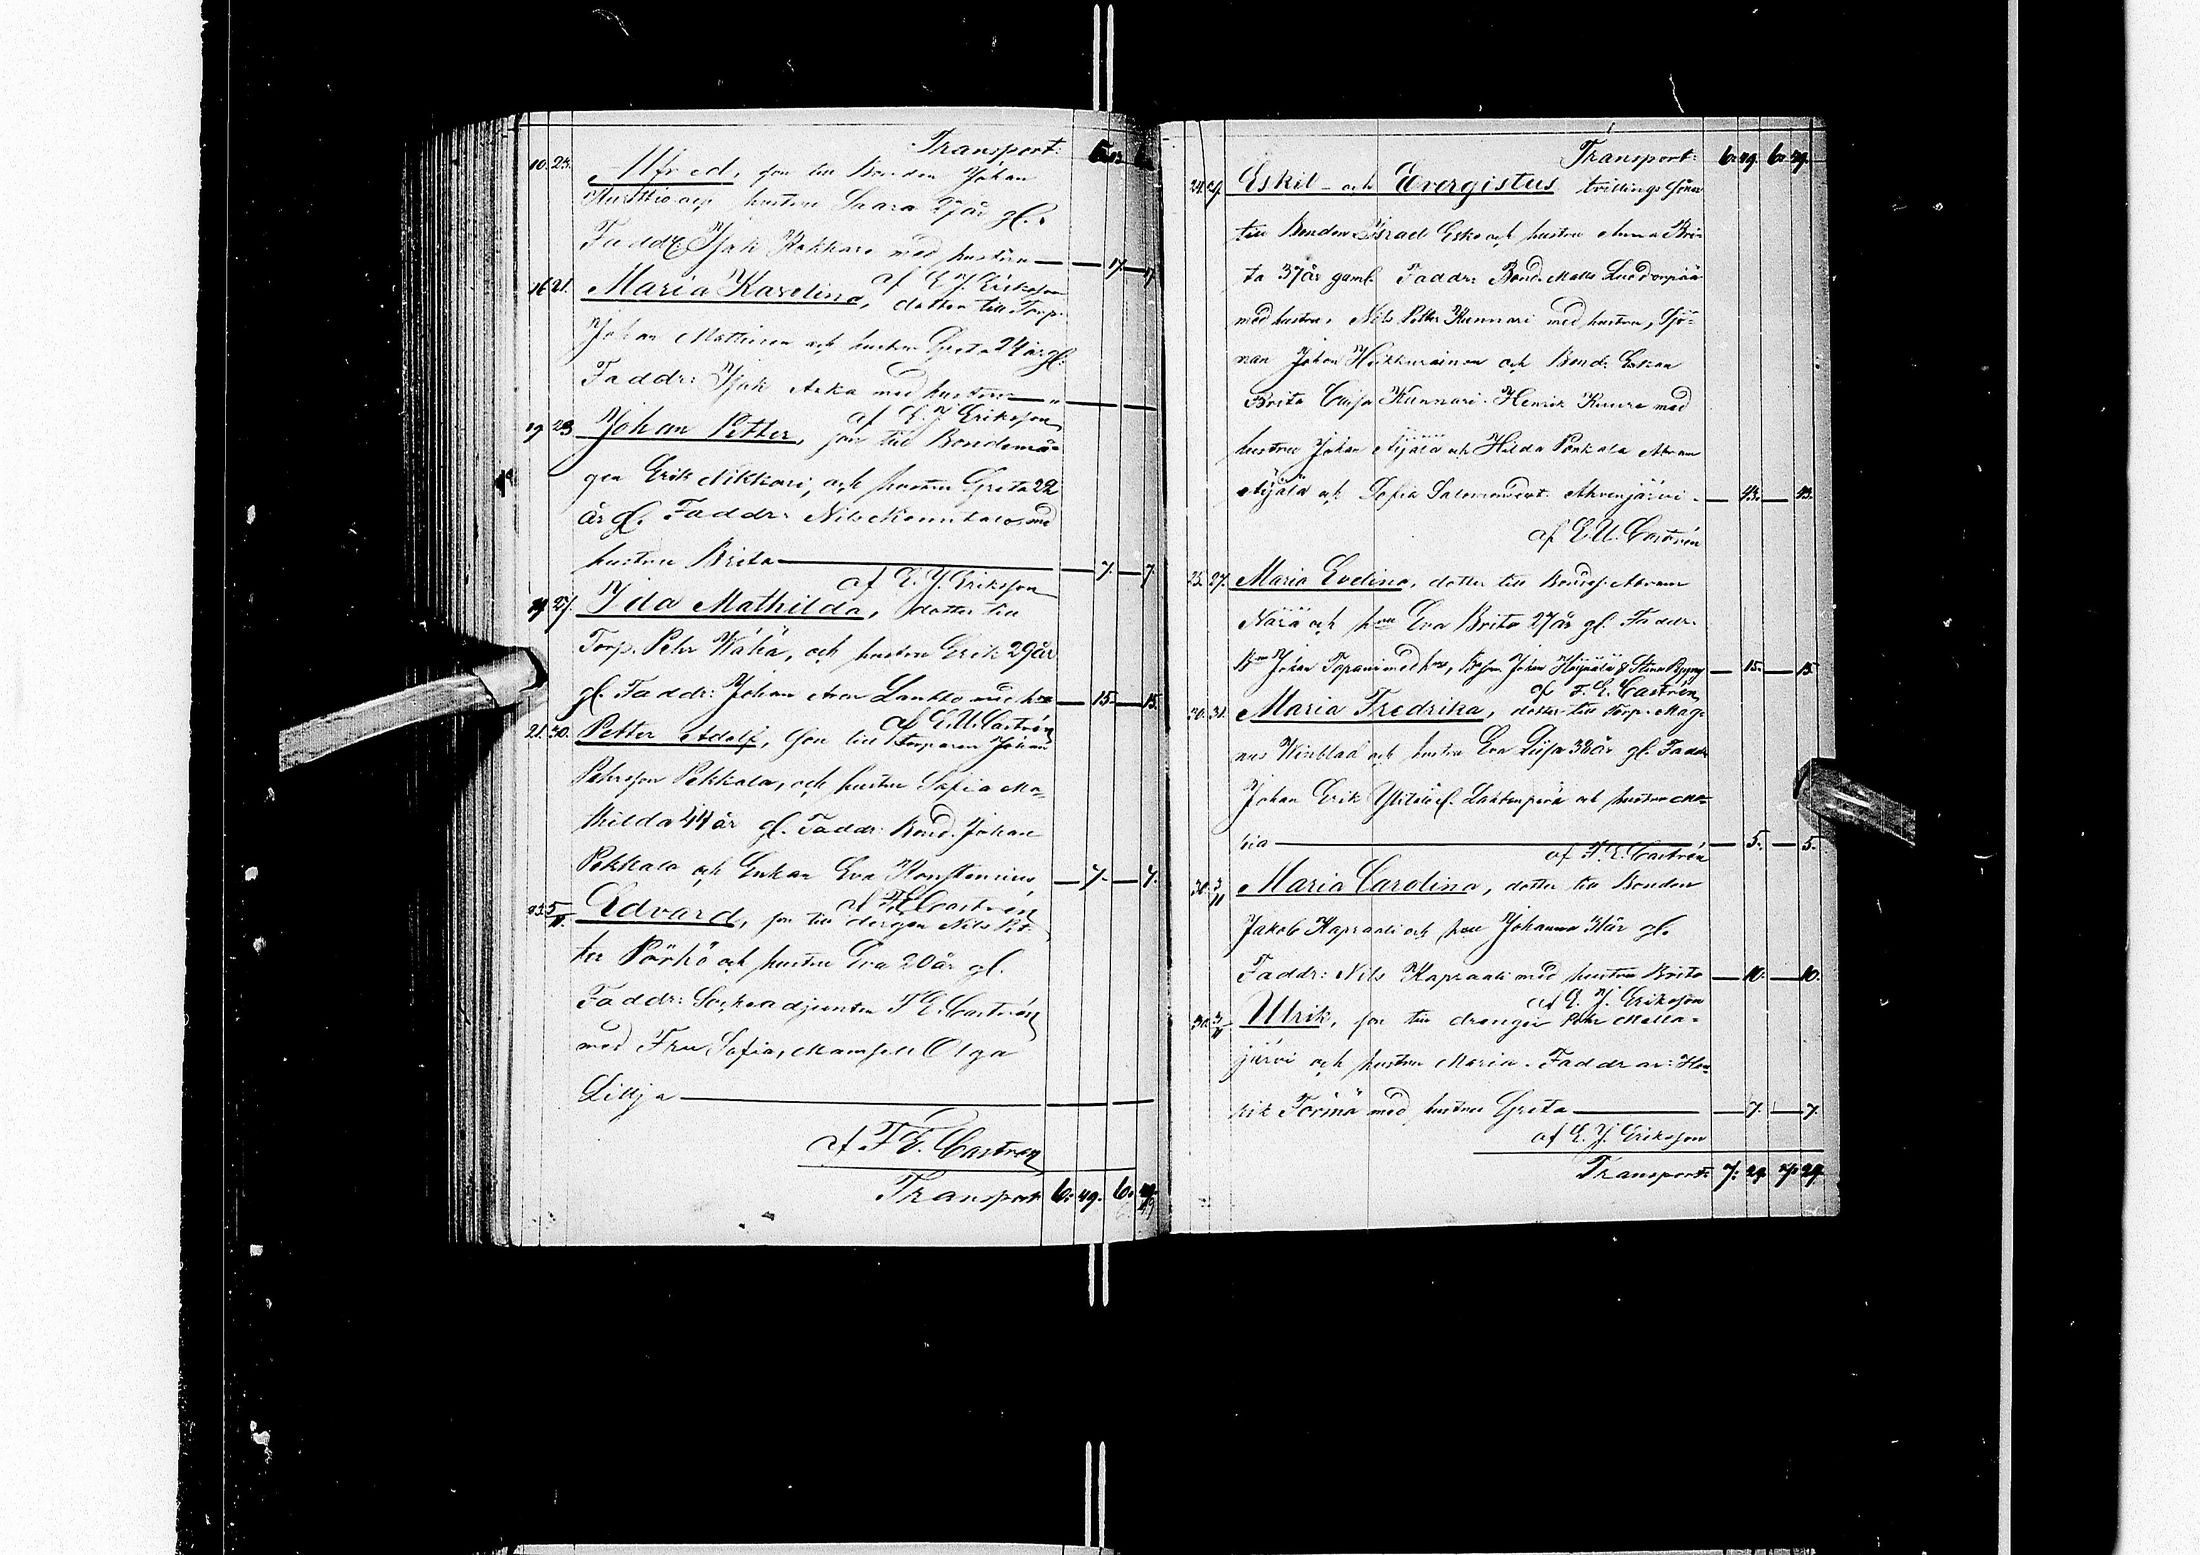 Transport:
10. 23. Alfred, son till Bonden Johan
och hustru Saara 27 år gl.
Faddr. Isak Kokkare med hustru — 17 — 17
af E. J. Eriksson
16 21. Maria Karolina, dotter till Torp.
Johan Mattinen och hustru Greta 24 år gl.
Faddr: Isak Aska med hustru —
af E. J. Eriksson
19 23 Johan Petter, son till Bondemå-
gen Erik Nikkari, och hustru Greta 22
år gl. Faddr: Nils med
hustru Brita — 7. — 7.
af E. J. Eriksson
19 27. Ida Mathilda, dotter till
Torp. Pehr Wähä, och hustru Greta 29 år
gl. Faddr: Johan Aron Lantto med h:u — 15. — 15.
af E. U. Castrén
21. 30. Petter Adolf, Son till Torparen Johan
Pehrsson Pekkala, och hustru Sofia Ma-
thilda 44 år gl. Faddr: Bond. Johan
Pekkala och Enkan Eva Konstenius — 7. — 7.
af F. E. Castrén
23. 5/11. Edvard, son till drengen Nils Pet-
ter Pörhö och hustru Eva 20 år gl.
Faddr: Sockneadjunkten F. E. Castrén
med Fru Sofia, Mamsell Olga
Lillja —
af F. E. Castrén
Transport 6: 49. 6: 49
Transport: 6: 49. 6: 49.
24. 27. Eskil och Evergistus tvillings Söner
till Bonden Israel Esko och hustru Anna Bri-
ta 37 år gaml. Faddr: Bond. Matts
med hustru, Nils Petter Kunnari med hustru, Sjö-
man Johan Heikkurainen och Bond. Enkan
Brita Caisa Kunnari. Henrik Kuure med
hustru Johan Äijälä och Hilda Porkala Abram
Äijälä och Sofia Ahvenjärvi — 43. — 43.
af E. U. Castrén
25. 27. Maria Evelina, dotter till Abram
Närä och h:u Eva Brita 27 år gl. Faddr.
B:n Johan Tapani med h:u, Johan & Stina — 15. — 15
af F. E. Castrén
30. 31. Maria Fredrika, dotter till Torp. Mag-
nus Winblad och hustru Eva Liisa 38 år gl. Faddr
Johan Erik och hustru Ma-
ria — 5. — 5.
af F. E. Castrén
30. 3/11 Maria Carolina, dotter till Bonden
Jakob Kapraali och h:u Johanna 31 år gl.
Faddr: Nils Kapraali med hustru Brita — 10. — 10.
af E. J. Eriksson
30. 3/11 Ulrik, son till drengen Pehr Mella-
järvi och hustru Maria. Faddrar: Hen-
rik Törmä med hustru Greta — 7. — 7.
af E. J. Eriksson
Transport: 7: 29. 7: 29.